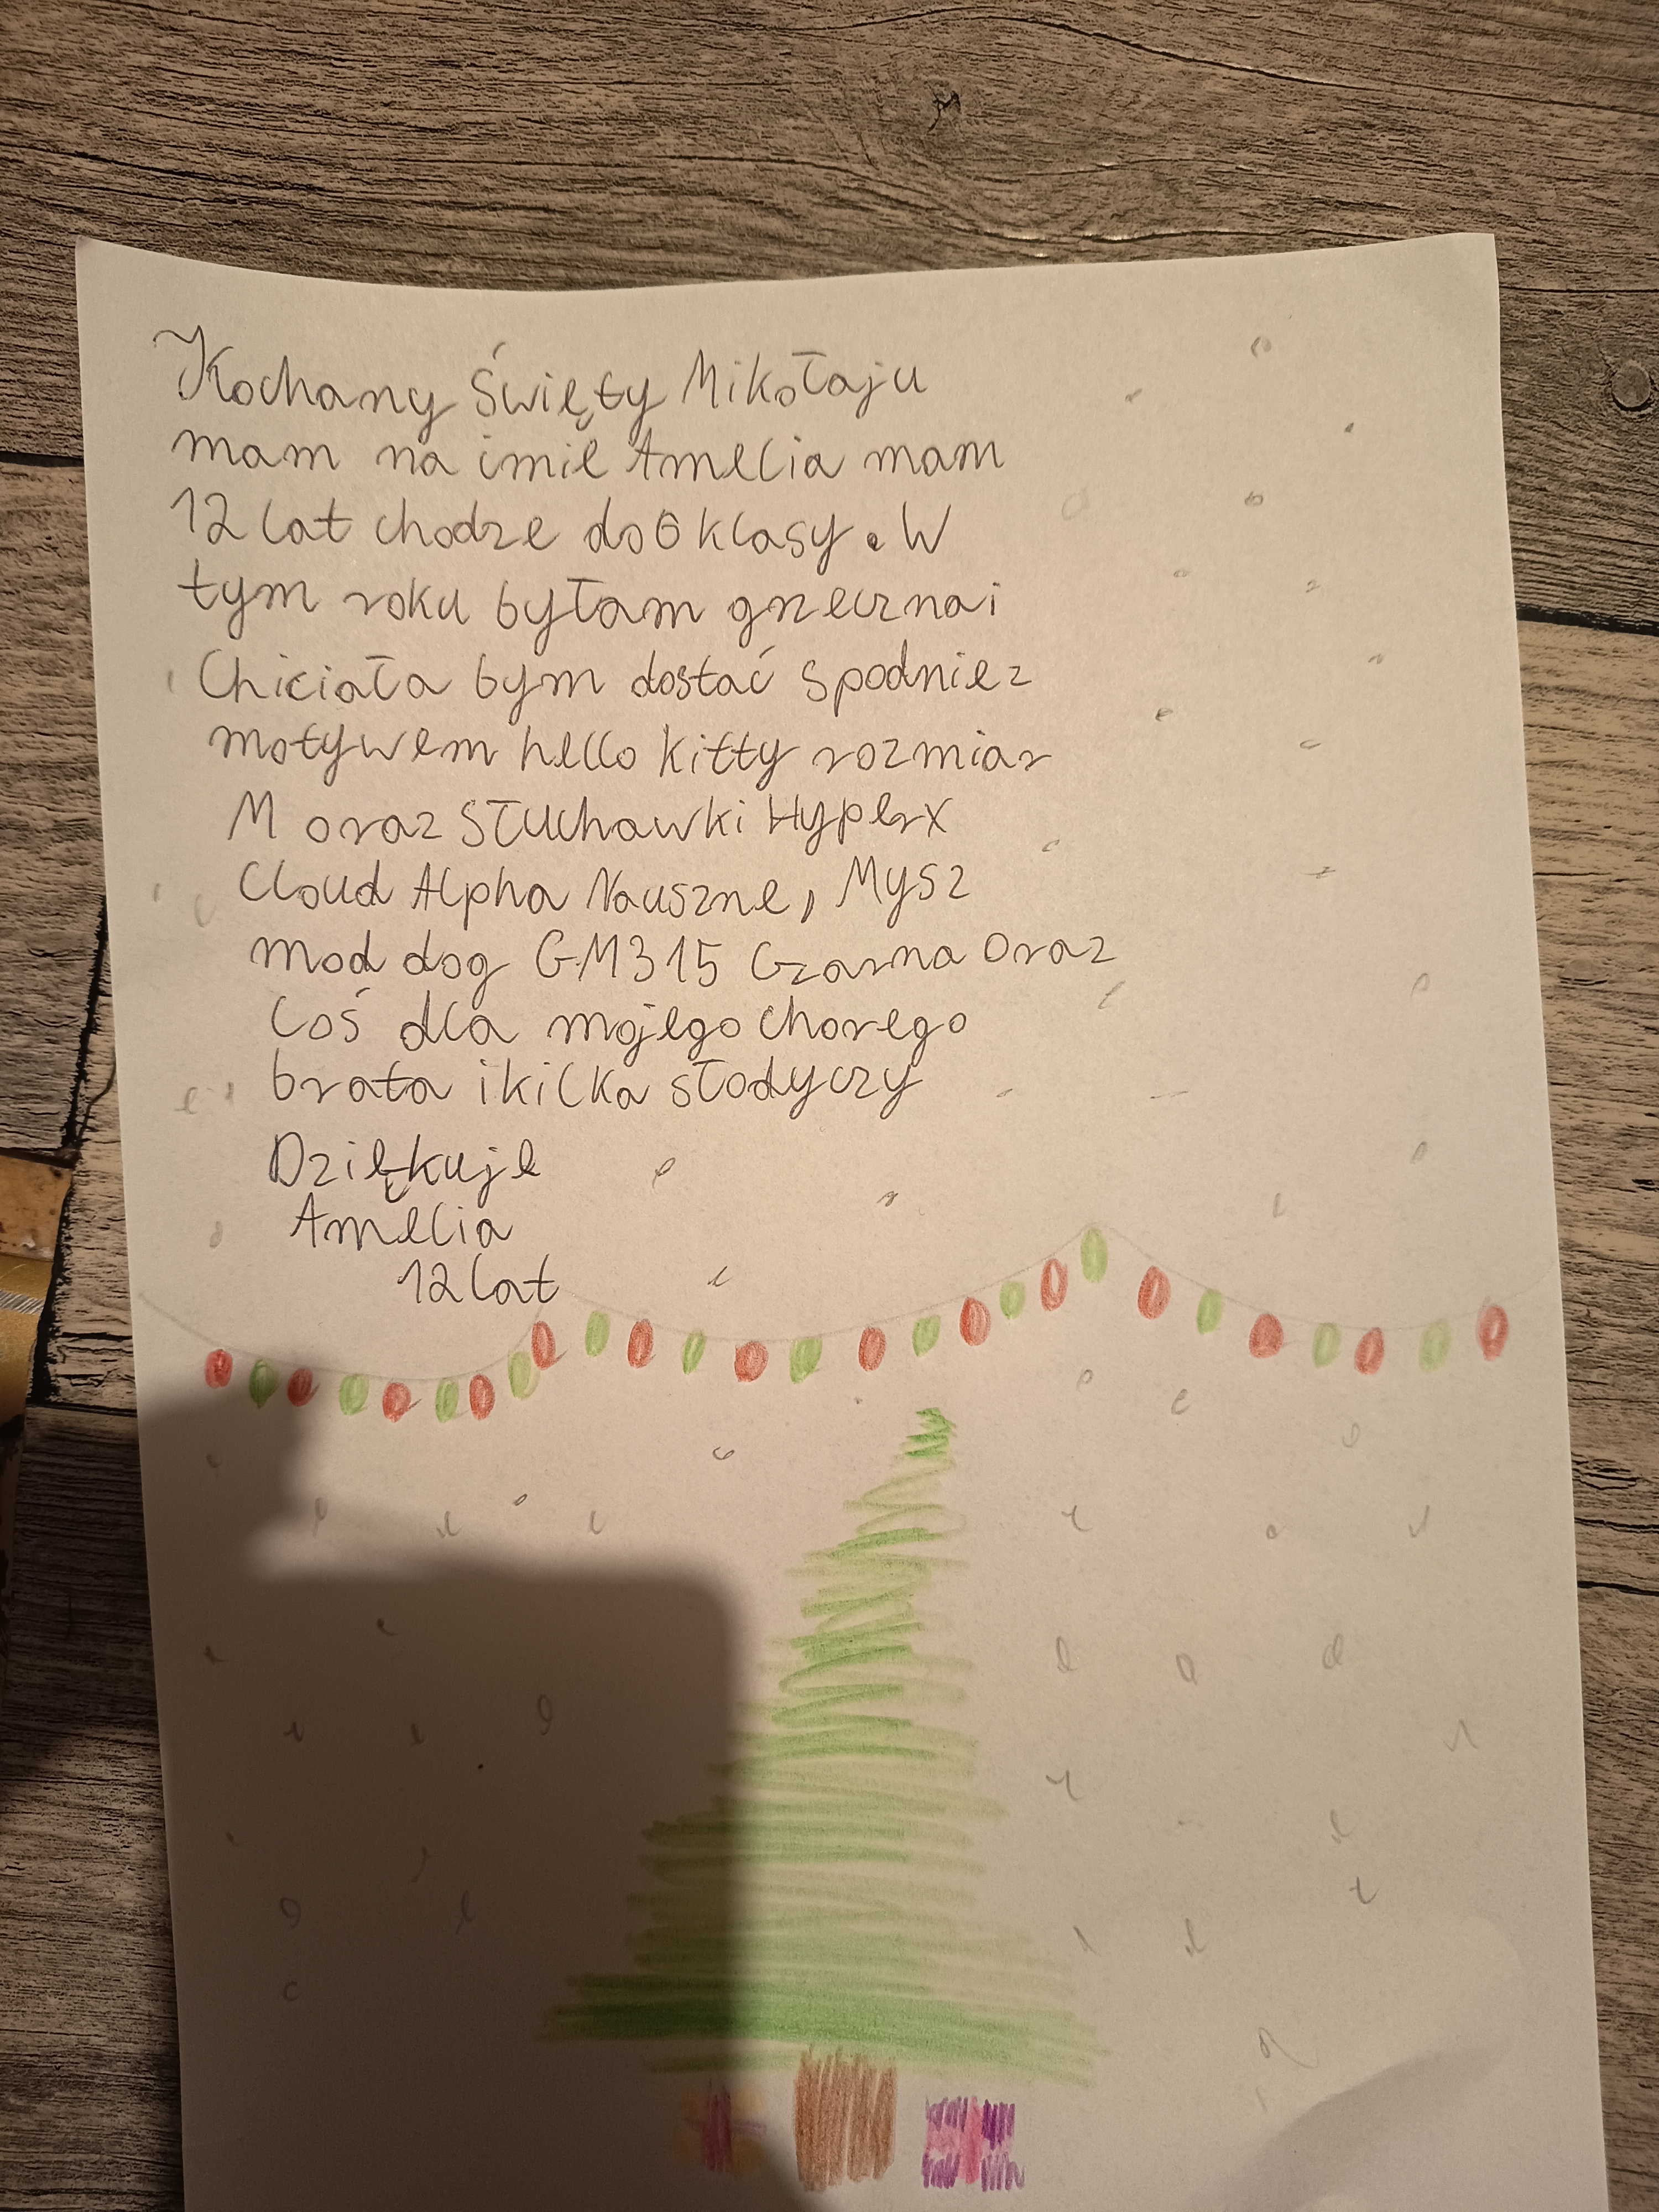 Kochany Święty Mikołaju
mam na imie Amelia mam
12 lat chodze do 6 klasy. W
tym roku byłam grzeczna i
Chiciała bym dostać spodnie z
motywem hello kitty rozmiar
M oraz słuchawki Hyperx
Cloud Alpha Nauszne, Mysz
mod dog GM315 Czarna oraz
Coś dla mojego chorego
brata i kilka słodyczy
Dziękuje
Amelia
12 lat